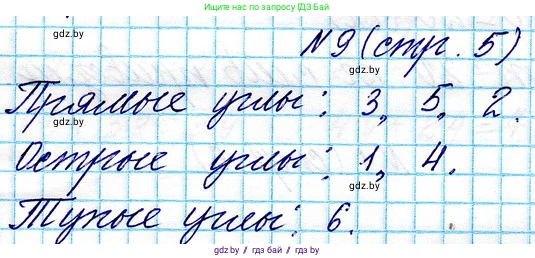 Присоединяйтесь к нам по запросу ГДЗ БАЙ
gdz.by
№9 (стр. 5)
gdz.by
Прямые углы: 3, 5, 2.
gdz.by
Острые углы: 1, 4.
gdz.by
Тупые углы: 6.
gdz.by / гдз бай / gdz.by